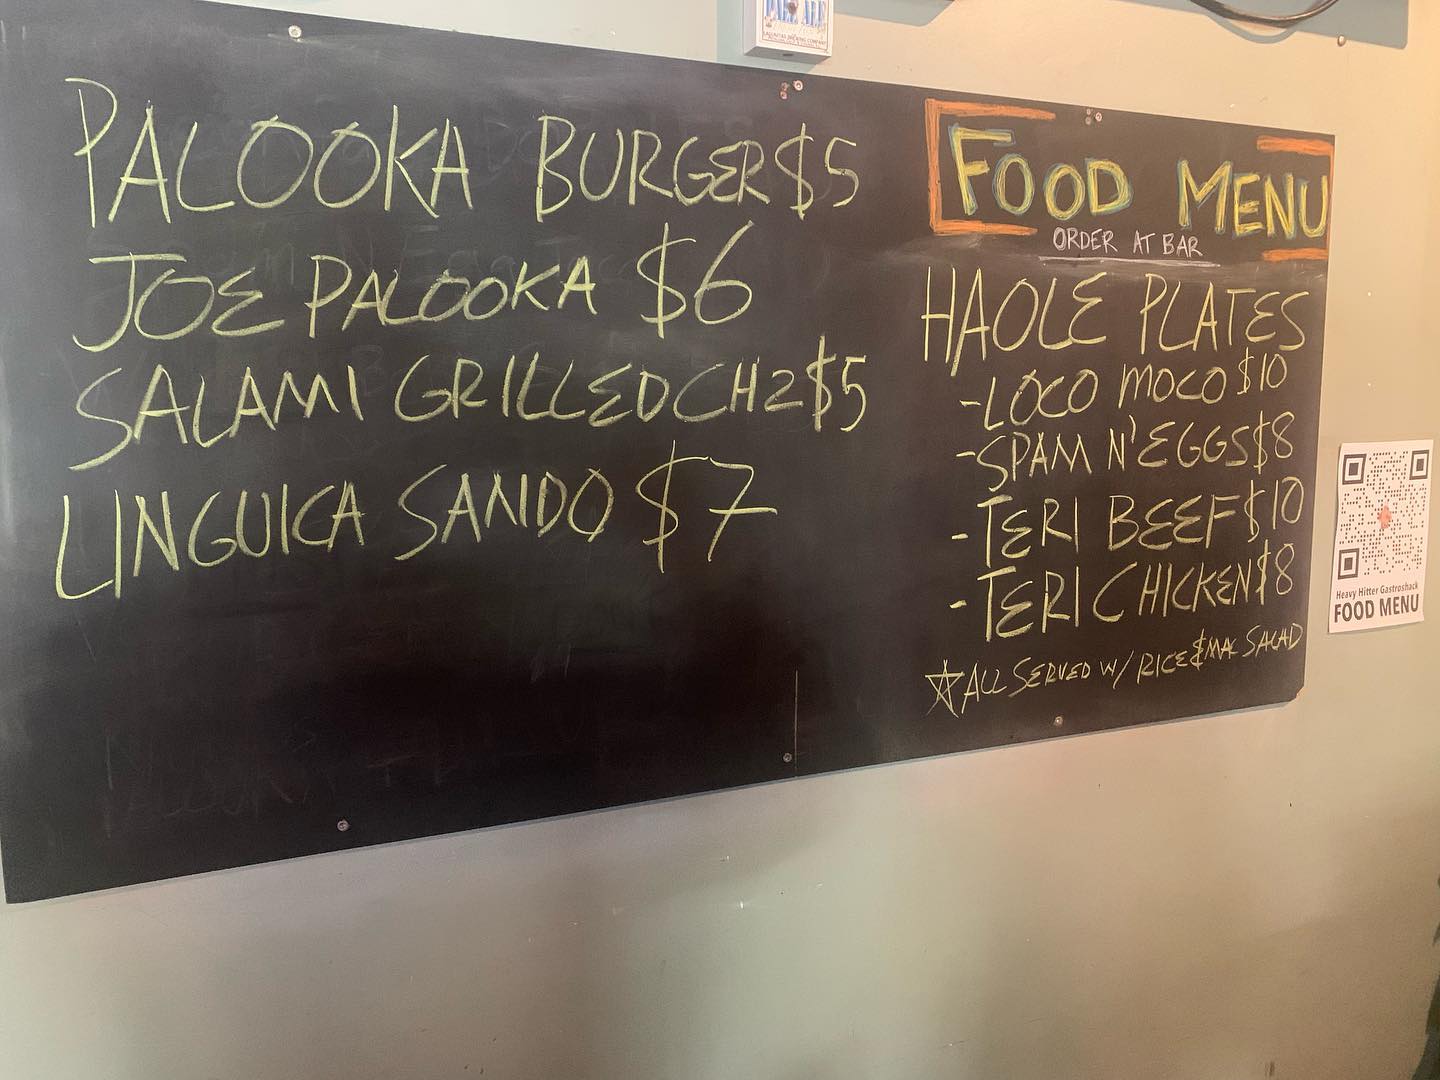 PALE ALE
LAGUNITAS BREWING COMPANY
PALOOKA BURGER $5
JOE PALOOKA $6
SALAMI GRILLED CHZ $5
LINGUICA SANDO $7
FOOD MENU
ORDER AT BAR
HAOLE PLATES
- LOCO MOCO $10
- SPAM N' EGGS $8
- TERI BEEF $10
- TERI CHICKEN $8
☆ ALL SERVED W/ RICE & MAC SALAD
Heavy Hitter Gastroshack
FOOD MENU